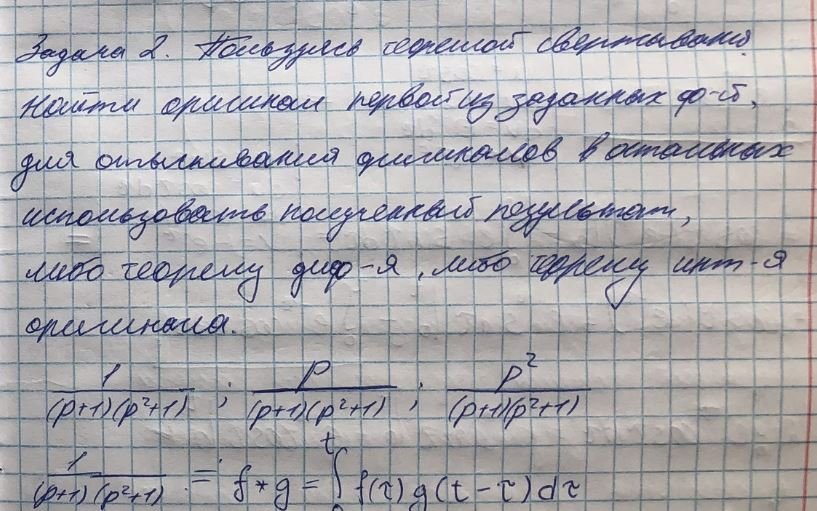 Задача 2. Пользуясь теоремой свертывания
найти оригинал первой из заданных ф-й,
для отыскивания оригиналов в остальных
использовать полученный результат,
либо теорему диф-я, либо теорему инт-я
оригинала.
1/((p+1)(p²+1)) ; p/((p+1)(p²+1)) ; p²/((p+1)(p²+1))
1/((p+1)(p²+1)) ≓ f*g = ∫₀ᵗ f(τ)g(t-τ)dτ